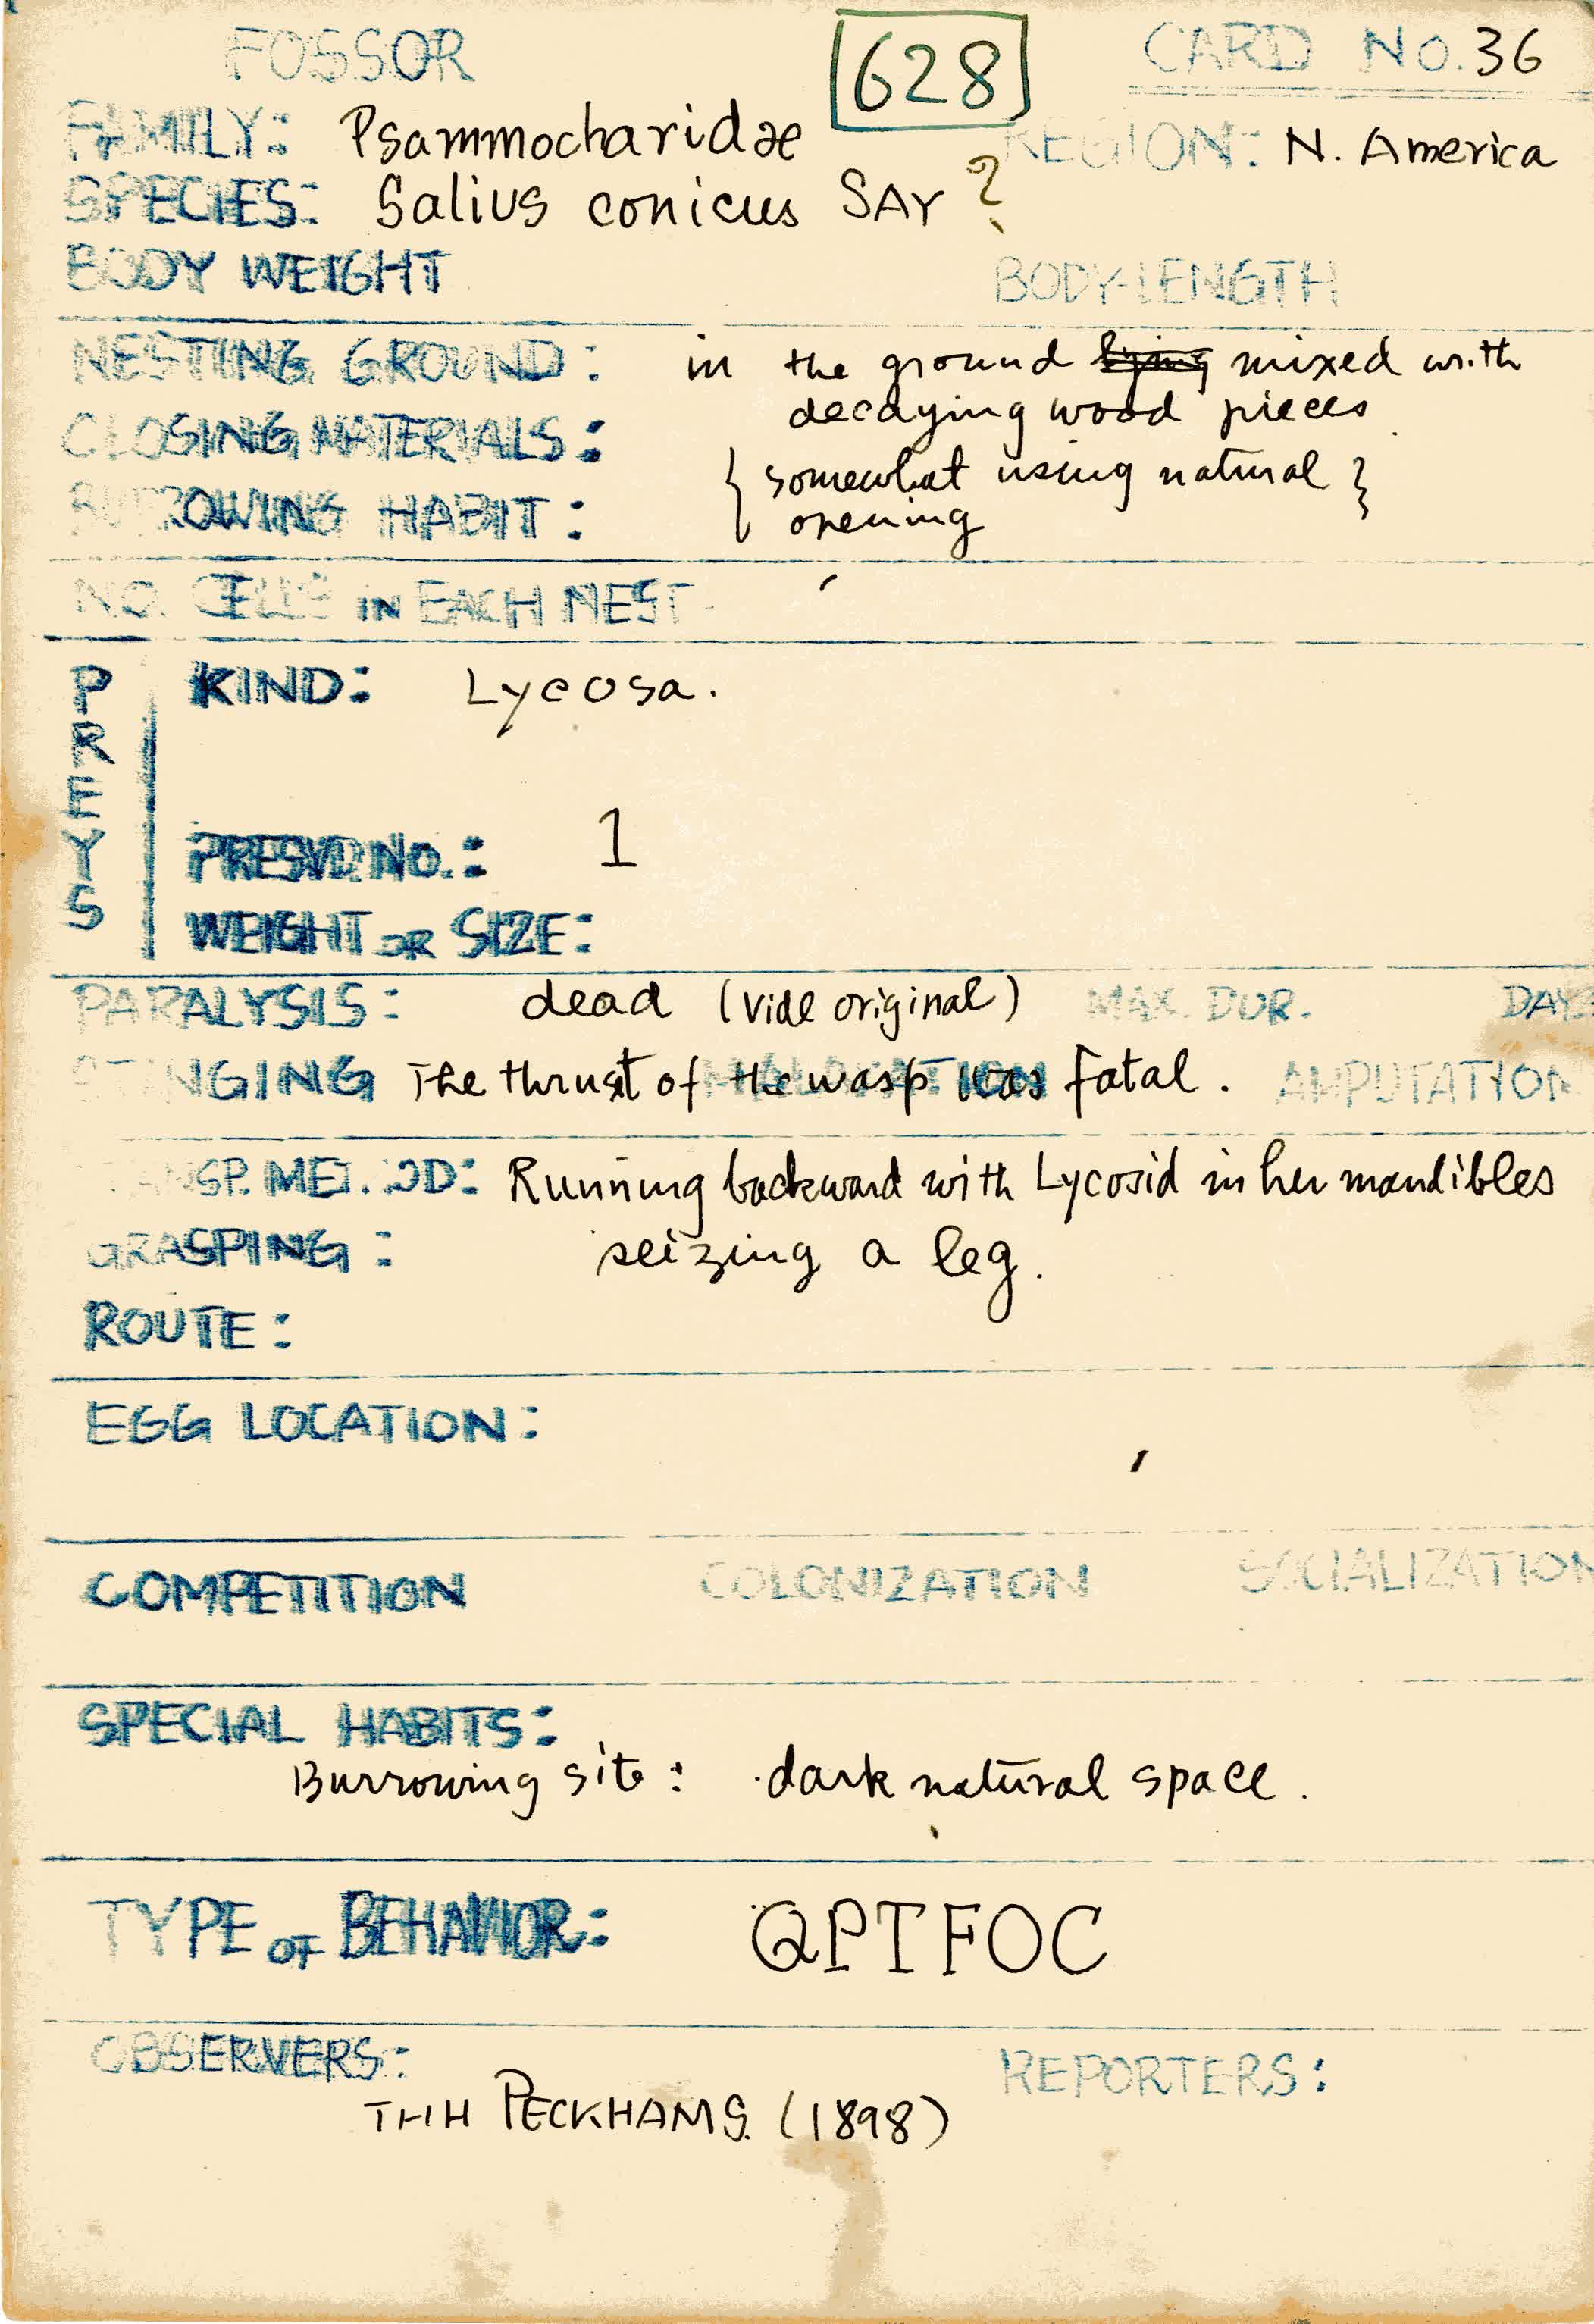 FOSSOR 628 CARD No. 36
FAMILY: Psammocharidæ REGION: N. America
SPECIES: Salius conicus SAY ?
BODY WEIGHT BODY-LENGTH
NESTING GROUND: in the ground lying mixed with
decaying wood pieces
CLOSING MATERIALS:
{ somewhat using natural }
BURROWING HABIT: opening
NO. CELLS IN EACH NEST
PREYS
KIND: Lycosa.
PRESVD NO.: 1
WEIGHT OR SIZE:
PARALYSIS: dead (vide original) MAX. DUR. DAYS
STINGING The thrust of the wasp was fatal. AMPUTATION
TRANSP. METHOD: Running backward with Lycosid in her mandibles
GRASPING: seizing a leg.
ROUTE:
EGG LOCATION:
COMPETITION COLONIZATION SOCIALIZATION
SPECIAL HABITS:
Burrowing site: dark natural space.
TYPE OF BEHAVIOR: QPTFOC
OBSERVERS: REPORTERS:
PECKHAMS. (1898)